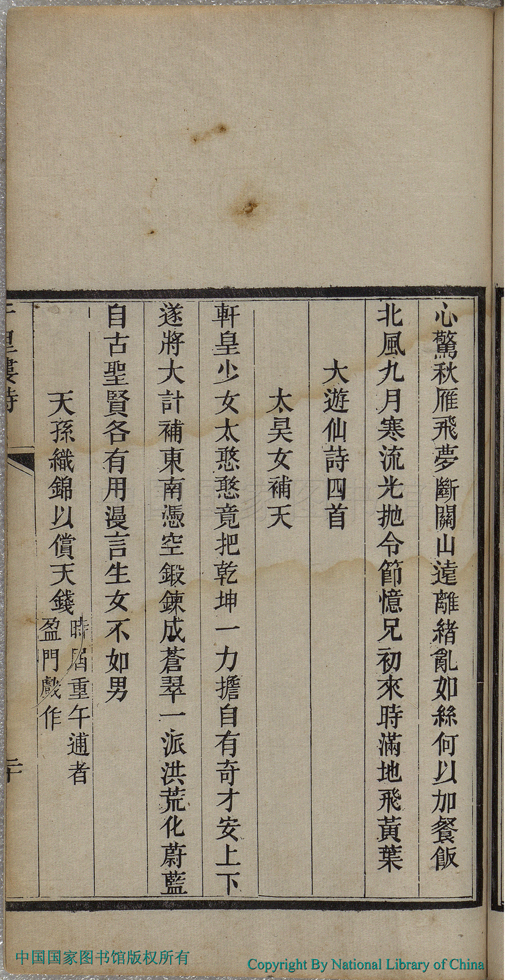 心驚秋雁飛夢斷關山遠離緒亂如絲何以加餐飯
北風九月寒流光拋令節憶兄初來時滿地飛黃葉
大遊仙詩四首
太昊女補天
軒皇少女太憨憨竟把乾坤一力擔自有奇才安上下
遂將大計補東南憑空鍛鍊成蒼翠一派洪荒化蔚藍
自古聖賢各有用漫言生女不如男
天孫織錦以償天錢時屆重午逋者
盈門戲作
二十
中国国家图书馆版权所有
Copyright By National Library of China